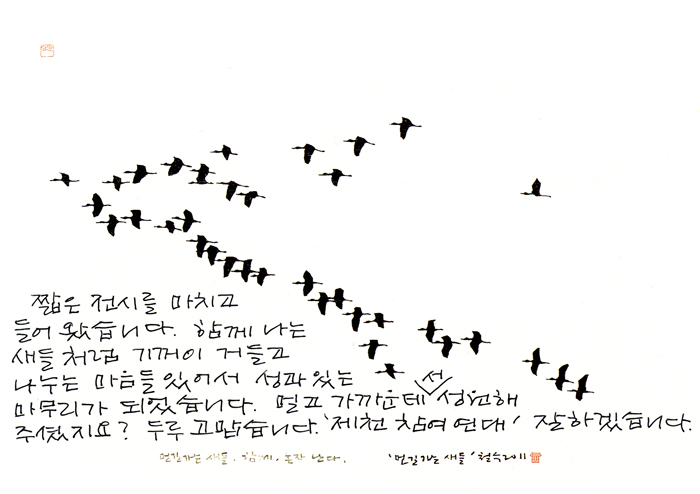 짧은 전시를 마치고
들어 왔습니다. 함께 나는
새들 처럼 기꺼이 거들고
나누는 마음들 있어서 성과 있는
마무리가 되었습니다. 멀고 가까운데서 성원해
주셨지요? 두루 고맙습니다. '제천 참여 연대' 잘하겠습니다.
먼길가는 새들. 함께. 혼자 난다. '먼길가는 새들' 철수 2011